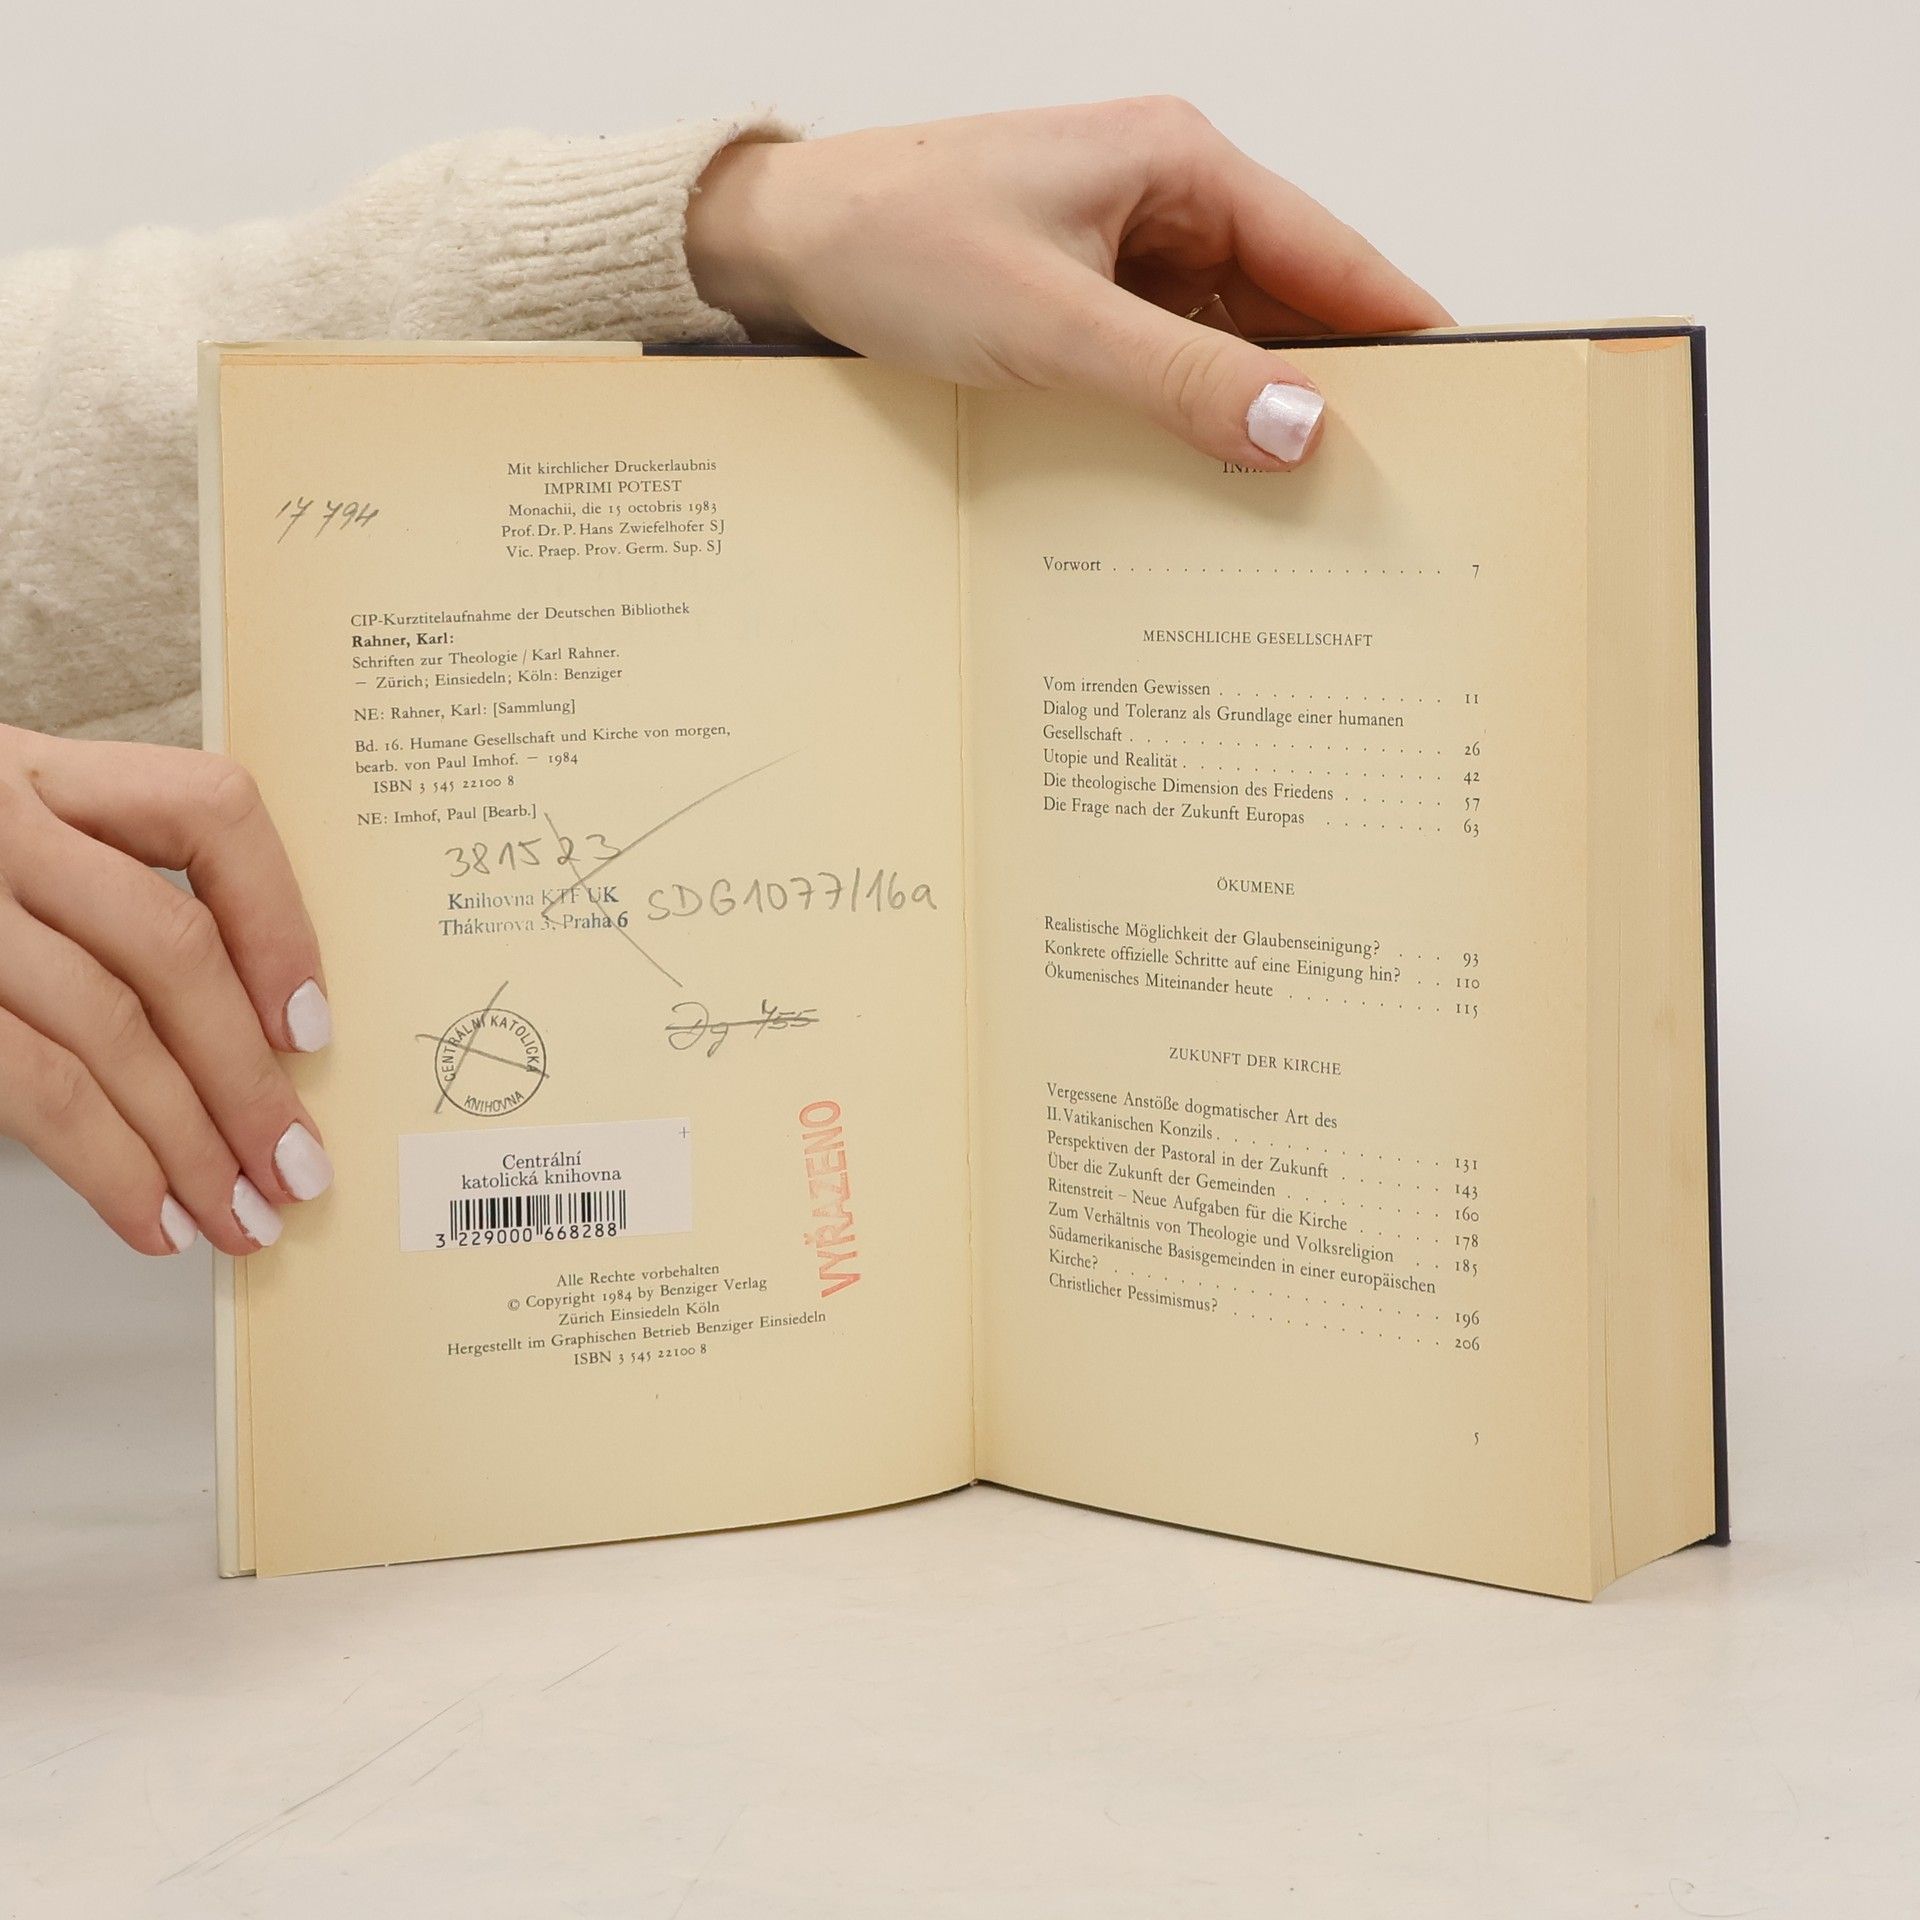 Mit kirchlicher Druckerlaubnis
IMPRIMI POTEST
Monachii, die 15 octobris 1983
Prof. Dr. P. Hans Zwiefelhofer SJ
Vic. Praep. Prov. Germ. Sup. SJ
17 794
CIP-Kurztitelaufnahme der Deutschen Bibliothek
Rahner, Karl:
Schriften zur Theologie / Karl Rahner.
– Zürich; Einsiedeln; Köln: Benziger
NE: Rahner, Karl: [Sammlung]
Bd. 16. Humane Gesellschaft und Kirche von morgen,
bearb. von Paul Imhof. – 1984
ISBN 3 545 22100 8
NE: Imhof, Paul [Bearb.]
381523
Knihovna KTF UK
Thákurova 3, Praha 6
SDG1077/16a
Dg 455
CENTRÁLNÍ KATOLICKÁ
KNIHOVNA
Centrální
katolická knihovna
3 229000 668288
VYŘAZENO
Alle Rechte vorbehalten
© Copyright 1984 by Benziger Verlag
Zürich Einsiedeln Köln
Hergestellt im Graphischen Betrieb Benziger Einsiedeln
ISBN 3 545 22100 8
Vorwort . . . . . . . . . . . . . . . . . . . 7
MENSCHLICHE GESELLSCHAFT
Vom irrenden Gewissen . . . . . . . . . . . . . 11
Dialog und Toleranz als Grundlage einer humanen
Gesellschaft . . . . . . . . . . . . . . . . . . 26
Utopie und Realität . . . . . . . . . . . . . . . 42
Die theologische Dimension des Friedens . . . . . . 57
Die Frage nach der Zukunft Europas . . . . . . . 63
ÖKUMENE
Realistische Möglichkeit der Glaubenseinigung? . . . 93
Konkrete offizielle Schritte auf eine Einigung hin? . . 110
Ökumenisches Miteinander heute . . . . . . . . . 115
ZUKUNFT DER KIRCHE
Vergessene Anstöße dogmatischer Art des
II. Vatikanischen Konzils . . . . . . . . . . . . . 131
Perspektiven der Pastoral in der Zukunft . . . . . . 143
Über die Zukunft der Gemeinden . . . . . . . . . 160
Ritenstreit – Neue Aufgaben für die Kirche . . . . . 178
Zum Verhältnis von Theologie und Volksreligion . . 185
Südamerikanische Basisgemeinden in einer europäischen
Kirche? . . . . . . . . . . . . . . . . . . . 196
Christlicher Pessimismus? . . . . . . . . . . . . 206
5